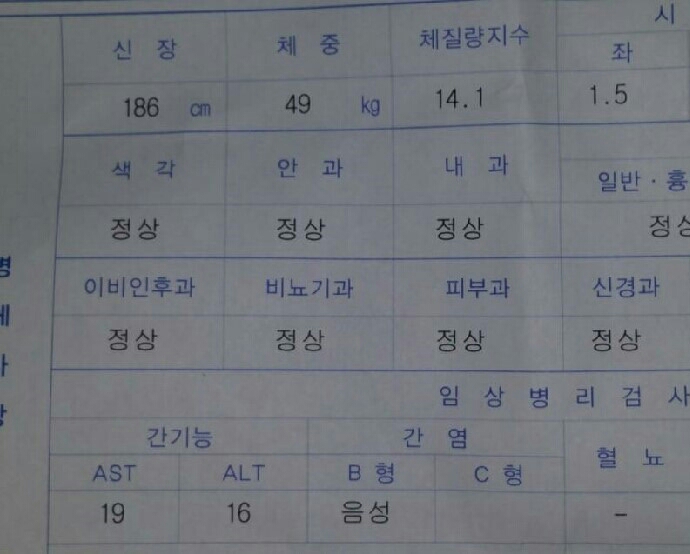 신 장 체 중 체질량지수 시
좌
186 cm 49 kg 14.1 1.5
색 각 안 과 내 과
일반 · 흉
정상 정상 정상 정상
이비인후과 비뇨기과 피부과 신경과
정상 정상 정상 정상
임 상 병 리 검 사
간기능 간 염 혈 뇨
AST ALT B 형 C 형
19 16 음성 -